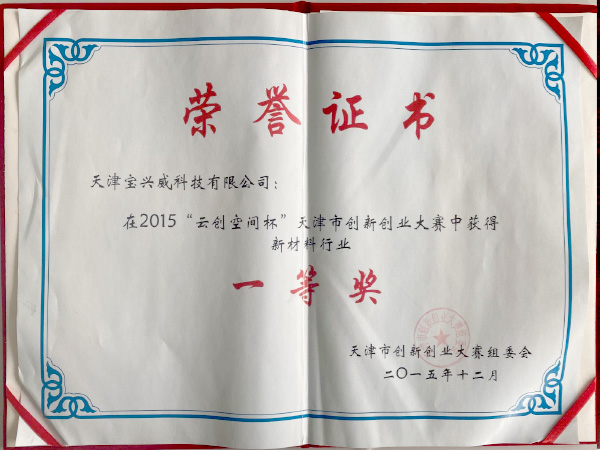 荣誉证书
天津宝兴威科技有限公司：
在2015“云创空间杯”天津市创新创业大赛中获得
新材料行业
一等奖
天津市创新创业大赛组委会
二〇一五年十二月